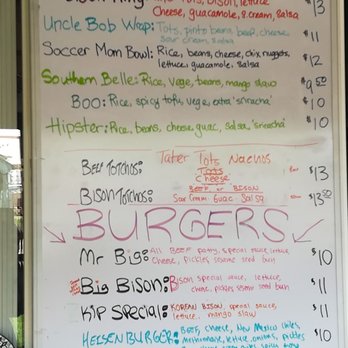 Tots, bison, lettuce $13
Cheese, guacamole, s. cream, salsa
Uncle Bob Wrap: Tots, pinto beans, beef, cheese $12
sour cream, salsa
Soccer Mom Bowl: Rice, beans, cheese, chix nuggets, $12
lettuce, guacamole, salsa
Southern Belle: Rice, vege, beans, mango slaw $9.50
Boo: Rice, spicy tofu, vege, extra 'sriracha' $10
Hipster: Rice, beans, cheese, guac, salsa 'sriracha' $10
Tater Tots Nachos
Beef Totchos: Tots $13
Cheese
Beef or Bison
Bison Totchos: Sour Cream Guac Salsa $13.50
BURGERS
Mr Big: All Beef patty, special sauce, lettuce, $10
Cheese, pickles sesame seed bun
Big Bison: Bison special sauce, lettuce, $11
cheese, pickles sesame seed bun
Kip Special: Korean Bison, special sauce, $11
lettuce, mango slaw
BEEF, cheese, New Mexico chiles, $10
lettuce, onions, pickles